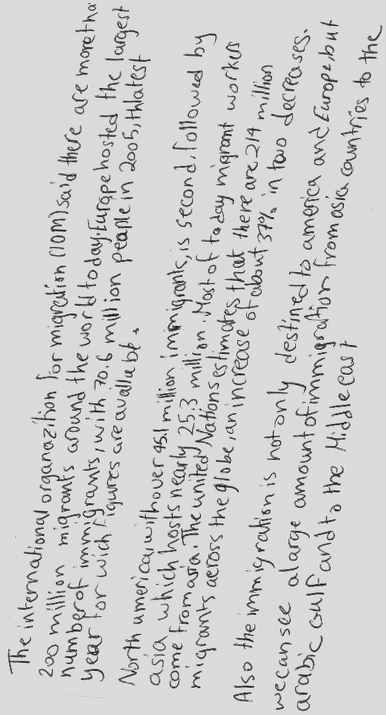 The international organazition for migration (IOM) said there are more tha
200 million migrants around the world today. Europe hosted the largest
number of immigrants, with 70.6 million people in 2005, thlatest
year for wich figures are availabe.
North america, with over 45.1 million immigrants, is second, followed by
asia which hosts nearly 25.3 million. Most of today migrant workers
come from asia. The united Nations estimates that there are 214 million
migrants across the globe, an increase of about 37% in two decreases.
Also the immigration is not only destined to america and Europe, but
we can see a large amount of immigration from asia countries to the
arabic Gulf and to the Middle east